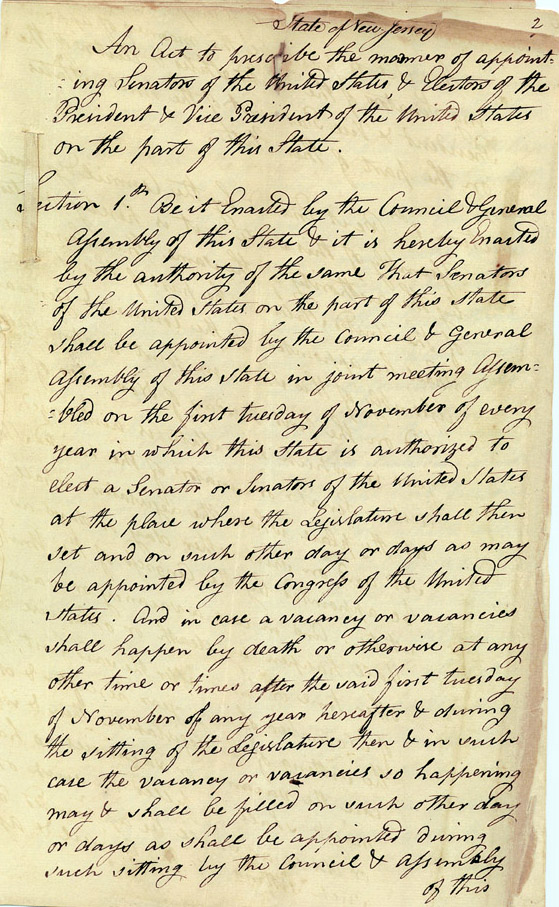 State of New Jersey
2
An Act to prescribe the manner of appoint-
:ing Senators of the United States & Electors of the
President & Vice President of the United States
on the part of this State.
Section 1.th Be it Enacted by the Council & General
Assembly of this State & it is hereby Enacted
by the authority of the same That Senators
of the United States on the part of this State
shall be appointed by the Council & General
Assembly of this State in joint meeting Assem=
=bled on the first tuesday of November of every
year in which this State is authorized to
elect a Senator or Senators of the United States
at the place where the Legislature shall then
set and on such other day or days as may
be appointed by the Congress of the United
States. And in case a vacancy or vacancies
shall happen by death or otherwise at any
other time or times after the said first tuesday
of November of any year hereafter & during
the sitting of the Legislature then & in such
case the vacancy or vacancies so happening
may & shall be filled on such other day
or days as shall be appointed during
such sitting by the Council & Assembly
of this